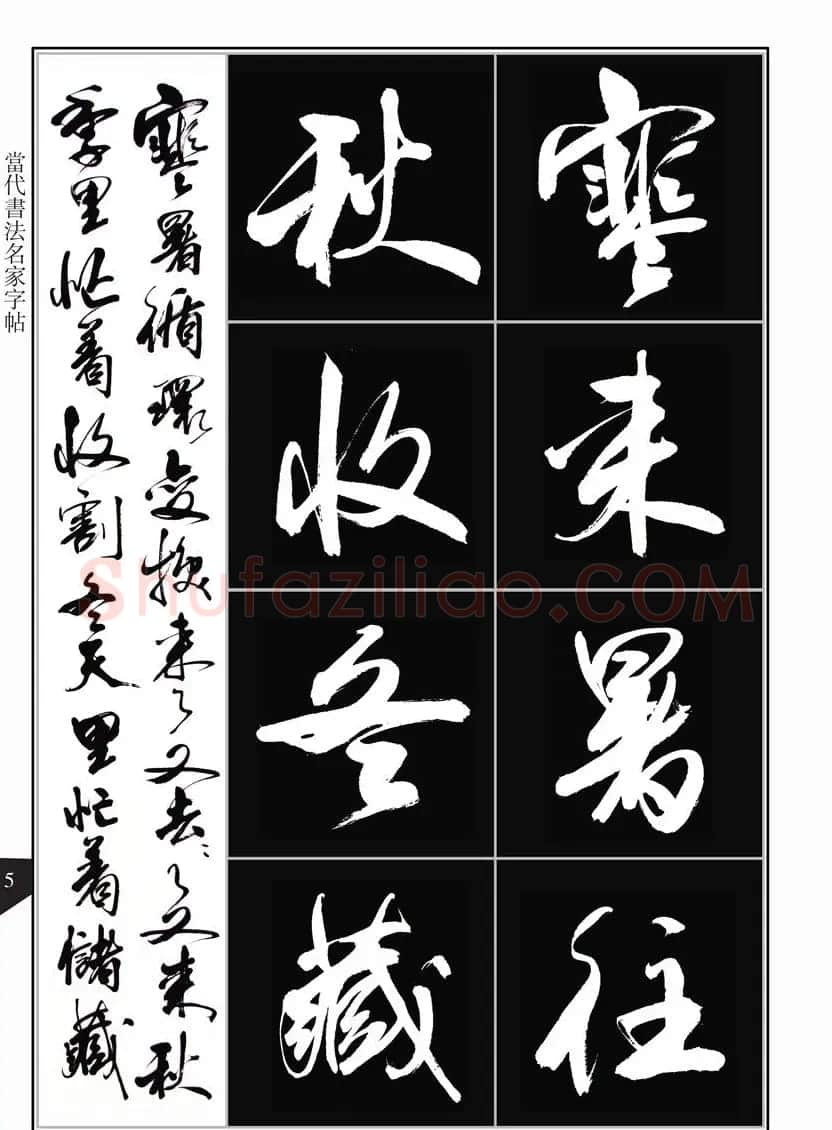 寒来暑往
秋收冬藏
寒暑循環变换来々又去々又来秋
季里忙着收割冬天里忙着儲藏
當代書法名家字帖
5
Shufaziliao.COM